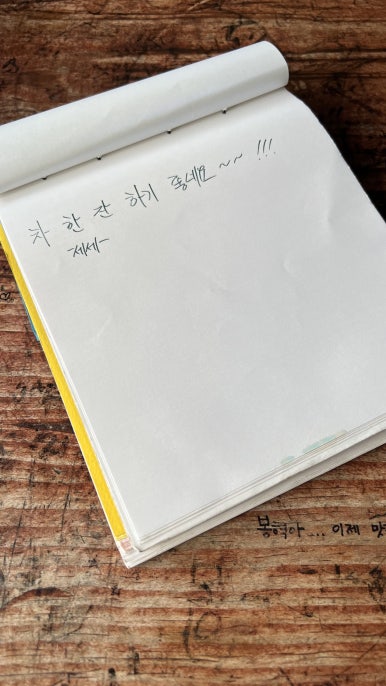 차 한 잔 하기 좋네요 ~~ !!!
-제세-
봉혁아 ... 이제 맛